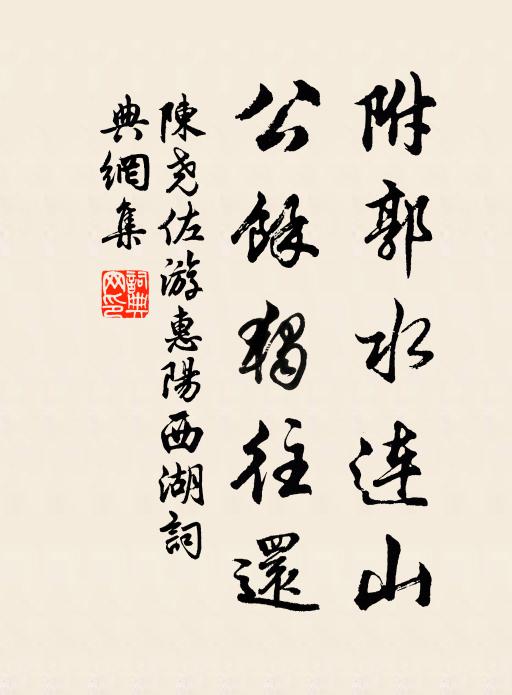 附郭水连山
公餘獨往還
陳尧佐游惠陽西湖詞
典網集
詞典網印